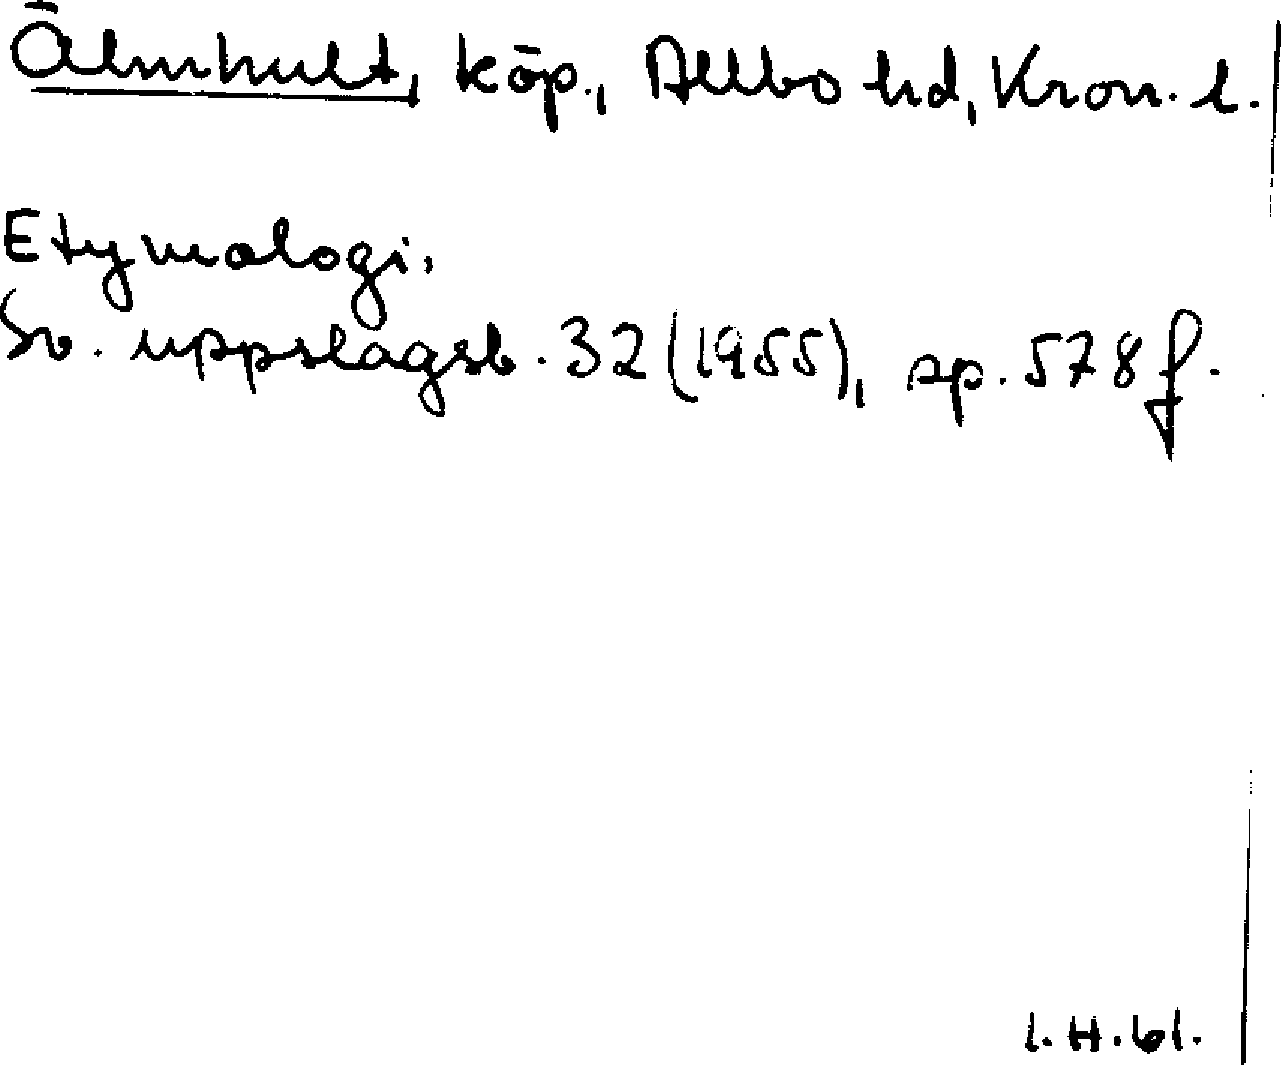 Älmhult, köp., Allbo hd, Kron. l.
Etymologi.
Sv. uppslagsb. 32 (1955), sp. 578 f.
I. H. 61.